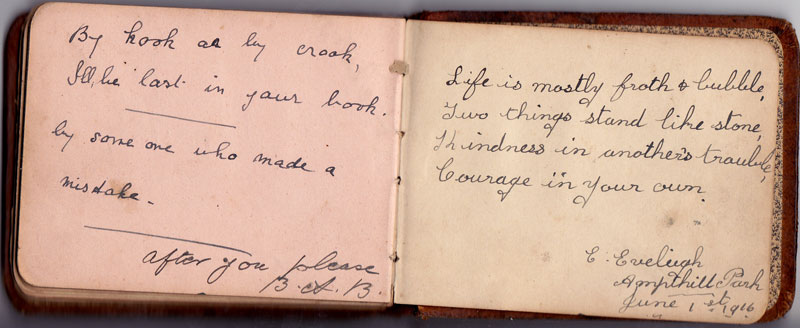 By hook or by crook,
I'll be last in your book.
by some one who made a
mistake.
after you please
B. A. B.
Life is mostly froth & bubble,
Two things stand like stone,
Kindness in another's trouble,
Courage in your own.
E. Eveleigh
Ampthill Park
June 1st 1916